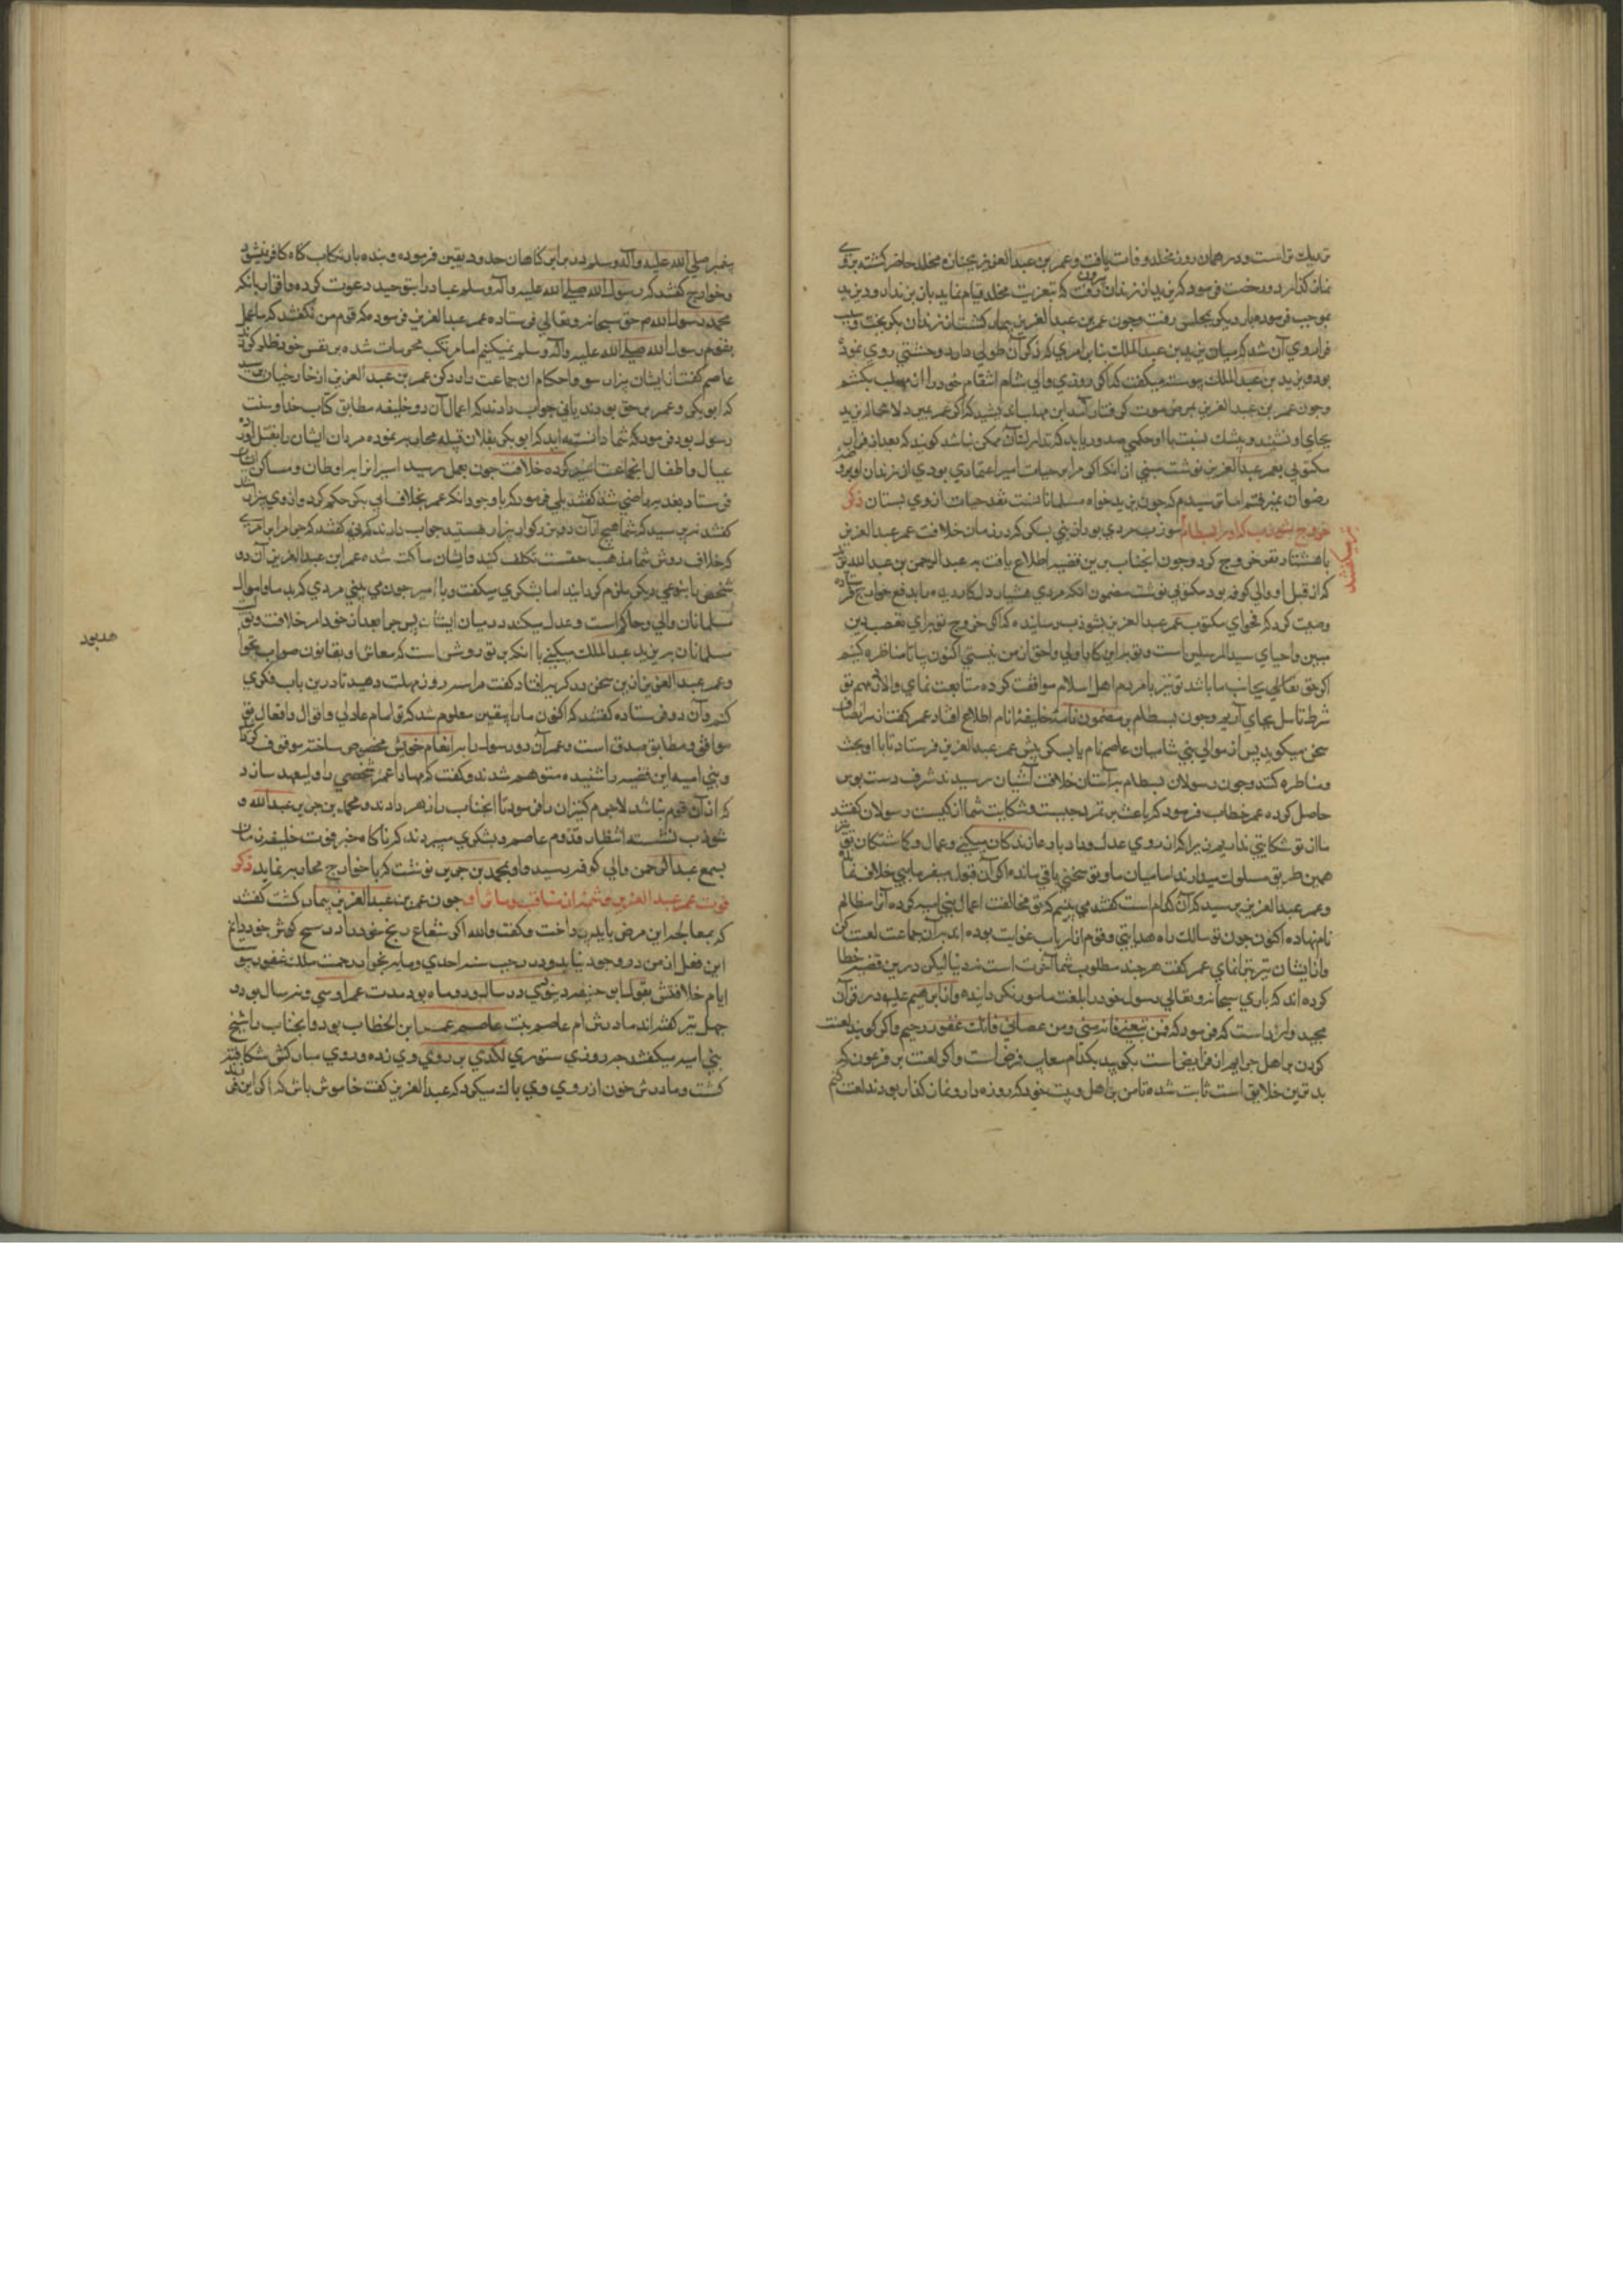 نزدیك تراست و در همان روز مخلد وفات یافت و عمر بن عبدالعزیز بجنازه مخلد حاضر کشته بروی
نماز کذارد و رخصت فرمود که یزید از زندان بیرون رفت که بتعزیت مخلد قیام نماید باز بزندان رود یزید
بموجب فرموده بار دیکر بمجلس رفت و چون عمر بن عبدالعزیز بیمار کشت از زندان بکریخت و سبب
فرار وی آن شد که میان یزید بن عبدالملك بنابر امری که ذکر آن طولی دارد وحشتی روی نموده
بود و یزید بن عبدالملك پیوسته میکفت که اکر روزی والی شام انتقام خود را از ابن مهلب بکشم
و چون عمر بن عبدالعزیز بمرض موت کرفتار آمد ابن مهلب اندیشید که اکر عمر بمیرد لا محاله یزید
بجای او نشیند و بیشك نسبت با او حکمی صدور یابد که تدارك آن ممکن نباشد کویند که بعد از فرار
مکتوبی بعمر عبدالعزیز نوشت مبنی از انکه اکر مرا بر حیات امیر اعتمادی بودی از زندان او بروضه
رضوان نمیرفتم اما ترسیدم که چون یزید خواهد مسلمانانست نقد حیات از وی بستان ذکر
خروج شوذب که او را بسطام شوذب مردی بود از بنی یشکر که در زمان خلافت عمر عبدالعزیز
با هشتاد نفر خروج کرد و چون انجناب برین قضیه اطلاع یافت به عبدالرحمن بن عبدالله
که از قبل او والی کوفه بود مکتوبی نوشت مضمون انکه مردی هشیار دل کار دیده باید بدفع خوارج فرستاده
وصیت کرد که فحوای مکتوب عمر عبدالعزیز بشوذب رسانیده که اکر خروج تو برای تعصب دین
مبین و احیای سیدالمرسلین است و تو باین کار اولی و احق از من نیستی اکنون بیا تا مناظره کنیم
اکر حق تعالی بجانب ما باشد تو نیز با مردم اهل اسلام موافقت کرده متابعت نمای و الا ما هم تو
شرط تامل بجای آریم و چون بسطام بر مضمون نامه خلیفه انام اطلاع افتاد عمر کفت از سر انصاف
سخن میکوید پس از موالی بنی شامیان عاصم نام با یشکری پیش عمر عبدالعزیز فرستاد تا با او بحث
و مناظره کنند و چون رسولان بسطام بر آستان خلافت آشیان رسیدند شرف دست بوس
حاصل کرده عمر خطاب فرمود که باعث بر تمرد چیست و شکایت شما از کیست رسولان کفتند
ما از تو شکایتی نداریم زیرا که از روی عدل و داد با درماندکان میکنی و عمال و کماشتکان تو نیز
همین طریق مسلوك میدارند اما میان ما و تو سخنی باقی مانده اکر آن قوله بیفرمایی خلاف نماند
و عمر عبدالعزیز پرسید که آن کدام است کفتند می بینیم که تو مخالفت اعمال بنی امیه کرده آنرا مظالم
نام نهاده اکنون چون تو سالك راه هدایتی و قوم از ارباب غوایت بوده اند بر آن جماعت لعنت کن
و از ایشان تبرا نمای عمر کفت هر چند مطلوب شما آخرت است نه دنیا لیکن درین قضیه خطا
کرده اند که باری سبحانه و تعالی رسول خود را بلعنت مامور نکردانیده و از ابراهیم علیه در قرآن
مجید وارد است که فرمود که فمن تبعنی فانه منی و من عصانی فانك غفور رحیم و اکر کویند لعنت
کردن بر اهل جرایم از فرایض است بکویید بکدام سبب فرض است و اکر لعنت بر فرعون که
بدترین خلایق است ثابت شده تا من بر اهل و بیت خود که روزه دار و نماز کذار بودند لعنت کنم
پیغمبر صلی الله علیه وآله وسلم در برابر این کناهان حدود یقین فرموده و بنده بارتکاب کناه کافر نمیشود
و خوارج کفتند که رسول الله صلی الله علیه وآله وسلم عباد را بتوحید دعوت کرده و اقرار بانکه
محمد رسول الله م حق سبحانه و تعالی فرستاده عمر عبدالعزیز فرموده که قوم من نکفتند که ما عمل
بقول رسول الله صلی الله علیه وآله وسلم نمیکنیم اما مرتکب محرمات شده بر نفس خود ظلم کرده
عاصم کفت از ایشان بیزار شو و احکام آن جماعت را رد کن عمر بن عبدالعزیز از
که ابوبکر و عمر بر حق بودند یا نی جواب دادند که اعمال آن دو خلیفه مطابق کتاب خدا و سنت
رسول بود فرمود که شما دانسته اید که ابوبکر بفلان قبیله محاربه نموده مردان ایشان را بقتل آورده
عیال و اطفال انجماعت اسیر کرده خلافت چون بعمر رسید اسیرانرا با اوطان و مساکن
فرستاد بعد بر ماضی شد کفتند بلی فرمود که با وجود انکه عمر بخلاف ابی بکر حکم کرد و از وی بیزار شد
کفتند نی پرسید که شما هیچ از آن دو بزرکوار بیزار هستید جواب دادند که نی کفتند که چرا مرا بر امری
که خلاف روش شما مذهب حقست تکلف کنید و ایشان ساکت شده عمر ابن عبدالعزیز آن دو
شخص را بنوعی دیکر ملزم کردانید اما یشکری میکفت و یا امیر چون می بینی مردی که بر ما و اموال
مسلمانان والی و حاکم است و عدل میکند در میان ایشان پس چرا بعد از خود امر خلافت و تولیت
مسلمانان به یزید عبدالملك میکنی با انکه بر تو روشن است که معاش او بقانون صواب نخواهد
و عمر عبدالعزیز ازین سخن در کریه افتاد کفت مرا سه روز مهلت دهید تا درین باب فکری
کنم و آن دو فرستاده کفتند که اکنون ما را یقین معلوم شد که تو امام عادلی و اقوال و افعال تو
موافق و مطابق صدق است و عمر آن دو رسول را بر انعام خویش مخصوص ساخته موقوف کرد
و بنی امیه این قضیه را شنیده متوهم شدند و کفتند که مبادا عمر شخصی را ولیعهد سازد
که از آن قوم نباشد لاجرم کنیزان را فرمودند تا انجناب را زهر دادند و محمد بن جریر بن عبدالله و
شوذب نشسته انتظار قدوم عاصم و یشکری میبردند که ناکاه خبر فوت خلیفه زمان
بسمع عبدالرحمن والی کوفه رسید و او بمحمد بن جریر نوشت که با خوارج محاربه نماید ذکر
فوت عمر عبدالعزیز و شمه از مناقب و ماثر او چون عمر بن عبدالعزیز بیمار کشت کفتند
که بمعالجه این مرض باید پرداخت و کفت والله اکر شفاع رنج خود را در مسح کوش خود دانم
این فعل از من در وجود نیاید و در رجب سنه احدی و مایه بجوار رحمت ملك غفور پیوست
ایام خلافتش بقول ابو حنیفه دینوری دو سال و دو ماه بود مدت عمر او سی و نه سال بود و
چهل نیز کفته اند مادرش ام عاصم بنت عاصم عمر ابن الخطاب بود و انجناب را شج
بنی امیه میکفتند چه روزی ستوری لکدی بر روی وی زده و روی مبارکش شکافته
کشت و مادرش خون از روی وی پاك میکرد که عبدالعزیز کفت خاموش باش که اکر این